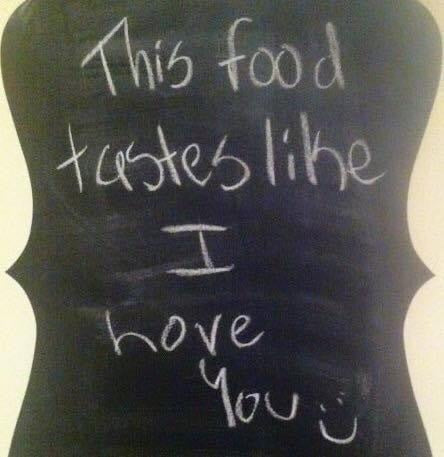 This food
tastes like
I
Love
You :)